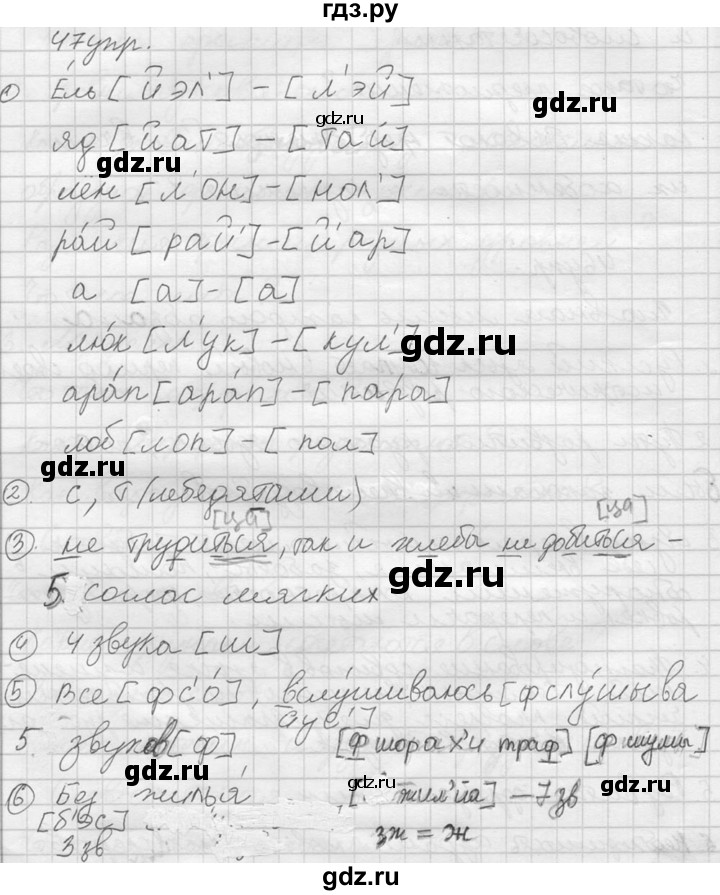 гдз.ру
47упр.
① Е́ль [йэл'] - [л'эй]
gdz.ru
яд [йат] - [тай]
gdz.ru
лён [л'он] - [нол']
gdz.ru
рай [рай'] - [й'ар]
а [а] - [а]
gdz.ru
люк [л'ук] - [кул']
ара́п [ара́п] - [пара]
лоб [лоп] - [пол]
gdz.ru
② с, т (лебедятами)
[ца] [ца]
③ не трудиться, так и хлеба не добиться -
gdz.ru
5 соглас мягких
④ 4 звука [ш]
⑤ все [фс'о], вслушиваюсь [фслу́шыва
аус']
5 звуков [ф] [фшорах'и траф] [фшумы]
gdz.ru
⑥ Без жилья́ [жил'йа] - 7 зв
[б'эс] зж = ж
3 зв
gdz.ru